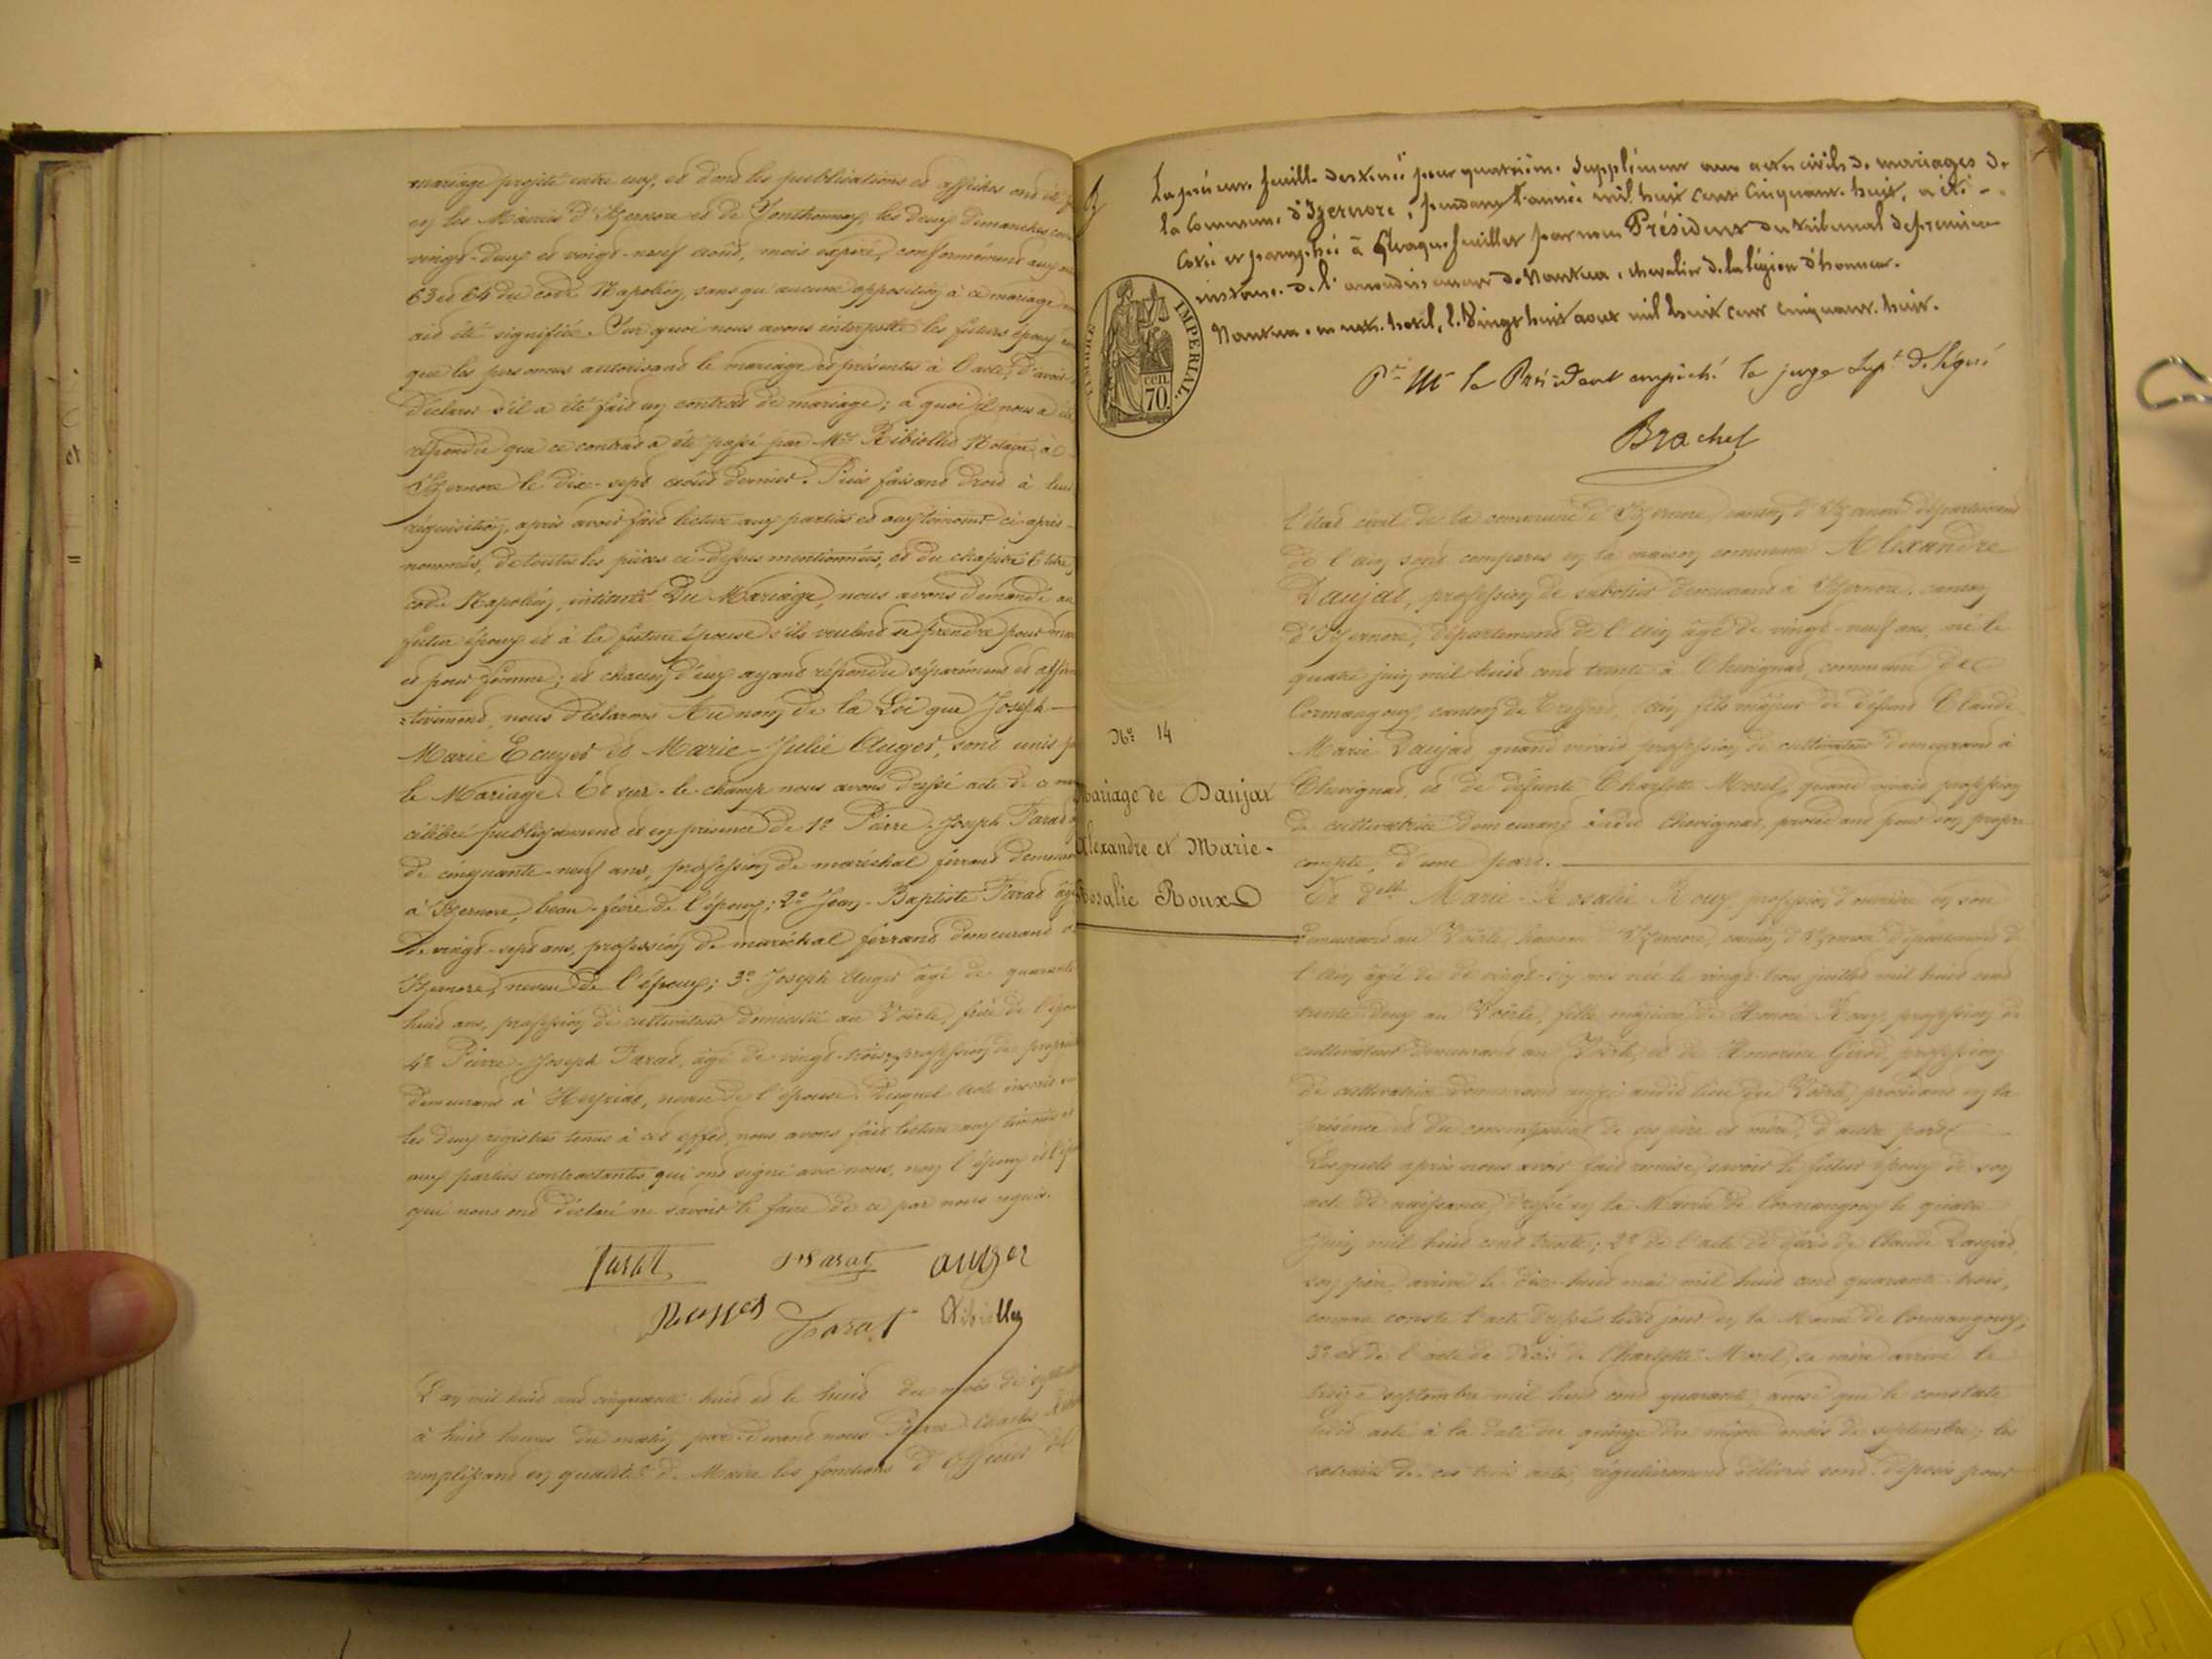 mariage projeté entre eux, et dont les publications et affiches ont été
en les Mairies d'Izernore et de Conthonnay, les deux Dimanches
vingt-deux et vingt-neuf août, mois expiré, conformément aux
63 et 64 du code Napoléon, sans qu'aucune opposition à ce mariage
ait été signifiée. Sur quoi nous avons interpellé les futurs époux
que les personnes autorisant le mariage et présentes à l'acte, d'avoir
déclarer s'il a été fait un contrat de mariage; à quoi il nous a été
répondu que ce contrat a été passé par Me Ribiollet Notaire à
Izernore le dix-sept août dernier. Puis faisant droit à leur
réquisition, après avoir fait lecture aux parties et aux témoins ci-après
nommés, de toutes les pièces ci-dessus mentionnées, et du chapitre 6 titre
code Napoléon, intitulé Du Mariage, nous avons demandé au
futur époux et à la future épouse s'ils veulent se prendre pour mari
et pour femme; et chacun d'eux ayant répondu séparément et affirma
=tivement, nous déclarons Au nom de la Loi que Joseph-
Marie Ecuyer et Marie-Julie Auger, sont unis
le Mariage. Et sur-le-champ nous avons dressé acte de ce
célébré publiquement et en présence de 1º Pierre-Joseph Tarat
de cinquante-neuf ans, profession de maréchal ferrant demeurant
à Izernore, beau-frère de l'époux; 2º Jean-Baptiste Tarat âgé
de vingt-sept ans, profession de maréchal ferrant demeurant à
Izernore, neveu de l'époux; 3º Joseph Auger âgé de quarante
huit ans, profession de cultivateur domicilié au Voërle, frère de l'épouse
4º Pierre-Joseph Tarat, âgé de vingt-trois, profession de
demeurant à Heyriat, neveu de l'épouse. Duquel acte inscrit
les deux régistres tenus à cet effet, nous avons fait lecture aux témoins et
aux parties contractantes qui ont signé avec nous, non l'époux et
qui nous ont déclaré ne savoir le faire de ce par nous requis.
Tarat Tarat auger
Tarat Ribiollet
L'an mil huit cent cinquante-huit et le huit du mois de septembre
à huit heures du matin par-devant nous Pierre Charles
remplissant en qualité de Maire les fonctions d'Officier de
La présente feuille destinée pour quatrième supplément aux actes civils de mariages de
la commune d'Izernore, pendant l'année mil huit cent cinquante-huit, a été
cotée et paraphée à chaque feuillet par nous Président du tribunal de première
instance de l'arrondissement de Nantua, chevalier de la légion d'honneur.
Nantua, en notre hotel, le vingt huit aout mil huit cent cinquante huit.
Pr Mr le Président empêché le juge supt délégué
Brachet
TIMBRE IMPERIAL
70 cen.
Nº 14
Mariage de Daujat
Alexandre et Marie-
Rosalie Roux
l'état civil de la commune d'Izernore, canton d'Izernore département
de l'Ain sont comparus en la maison commune Alexandre
Daujat, profession de sabotier demeurant à Izernore, canton
d'Izernore, département de l'Ain âgé de vingt-neuf ans, né le
quatre juin mil huit cent trente à Chevignat, commune de
Cormangoux, canton de Treffort, Ain, fils majeur de défunt Claude
Marie Daujat, quand vivait profession de cultivateur demeurant à
Chevignat, et de défunte Charlotte Morel, quand vivait profession
de cultivatrice demeurant audit Chevignat, procédant pour son propre
compte, d'une part.
Et delle Marie-Rosalie Roux, profession d'ouvrière en soie
demeurant au Voërle, hameau d'Izernore, canton d'Izernore département de
l'Ain âgée de de vingt-six ans née le vingt-trois juillet mil huit cent
trente-deux au Voërle, fille majeure de Honoré Roux, profession de
cultivateur demeurant au Voërle, et de Honorine Girod, profession
de cultivatrice demeurant aussi audit lieu du Voërle, procédant en la
présence et du consentement de ses père et mère, d'autre part.
Lesquels après nous avoir fait remise, savoir le futur époux de son
acte de naissance, dressé en la Mairie de Cormangoux le quatre
Juin mil huit cent trente; 2º de l'acte de décès de Claude Daujat,
son père, arrivé le dix-huit mai mil huit cent quarante-trois,
comme conste l'acte dressé ledit jour en la Mairie de Cormangoux;
3º et de l'acte de décès de Charlotte Morel, sa mère arrivé le
treize septembre mil huit cent quarante, ainsi que le constate
ledit acte à la date du quinze du même mois de septembre; les
extraits de ces trois actes, régulièrement délivrés sont déposés pour